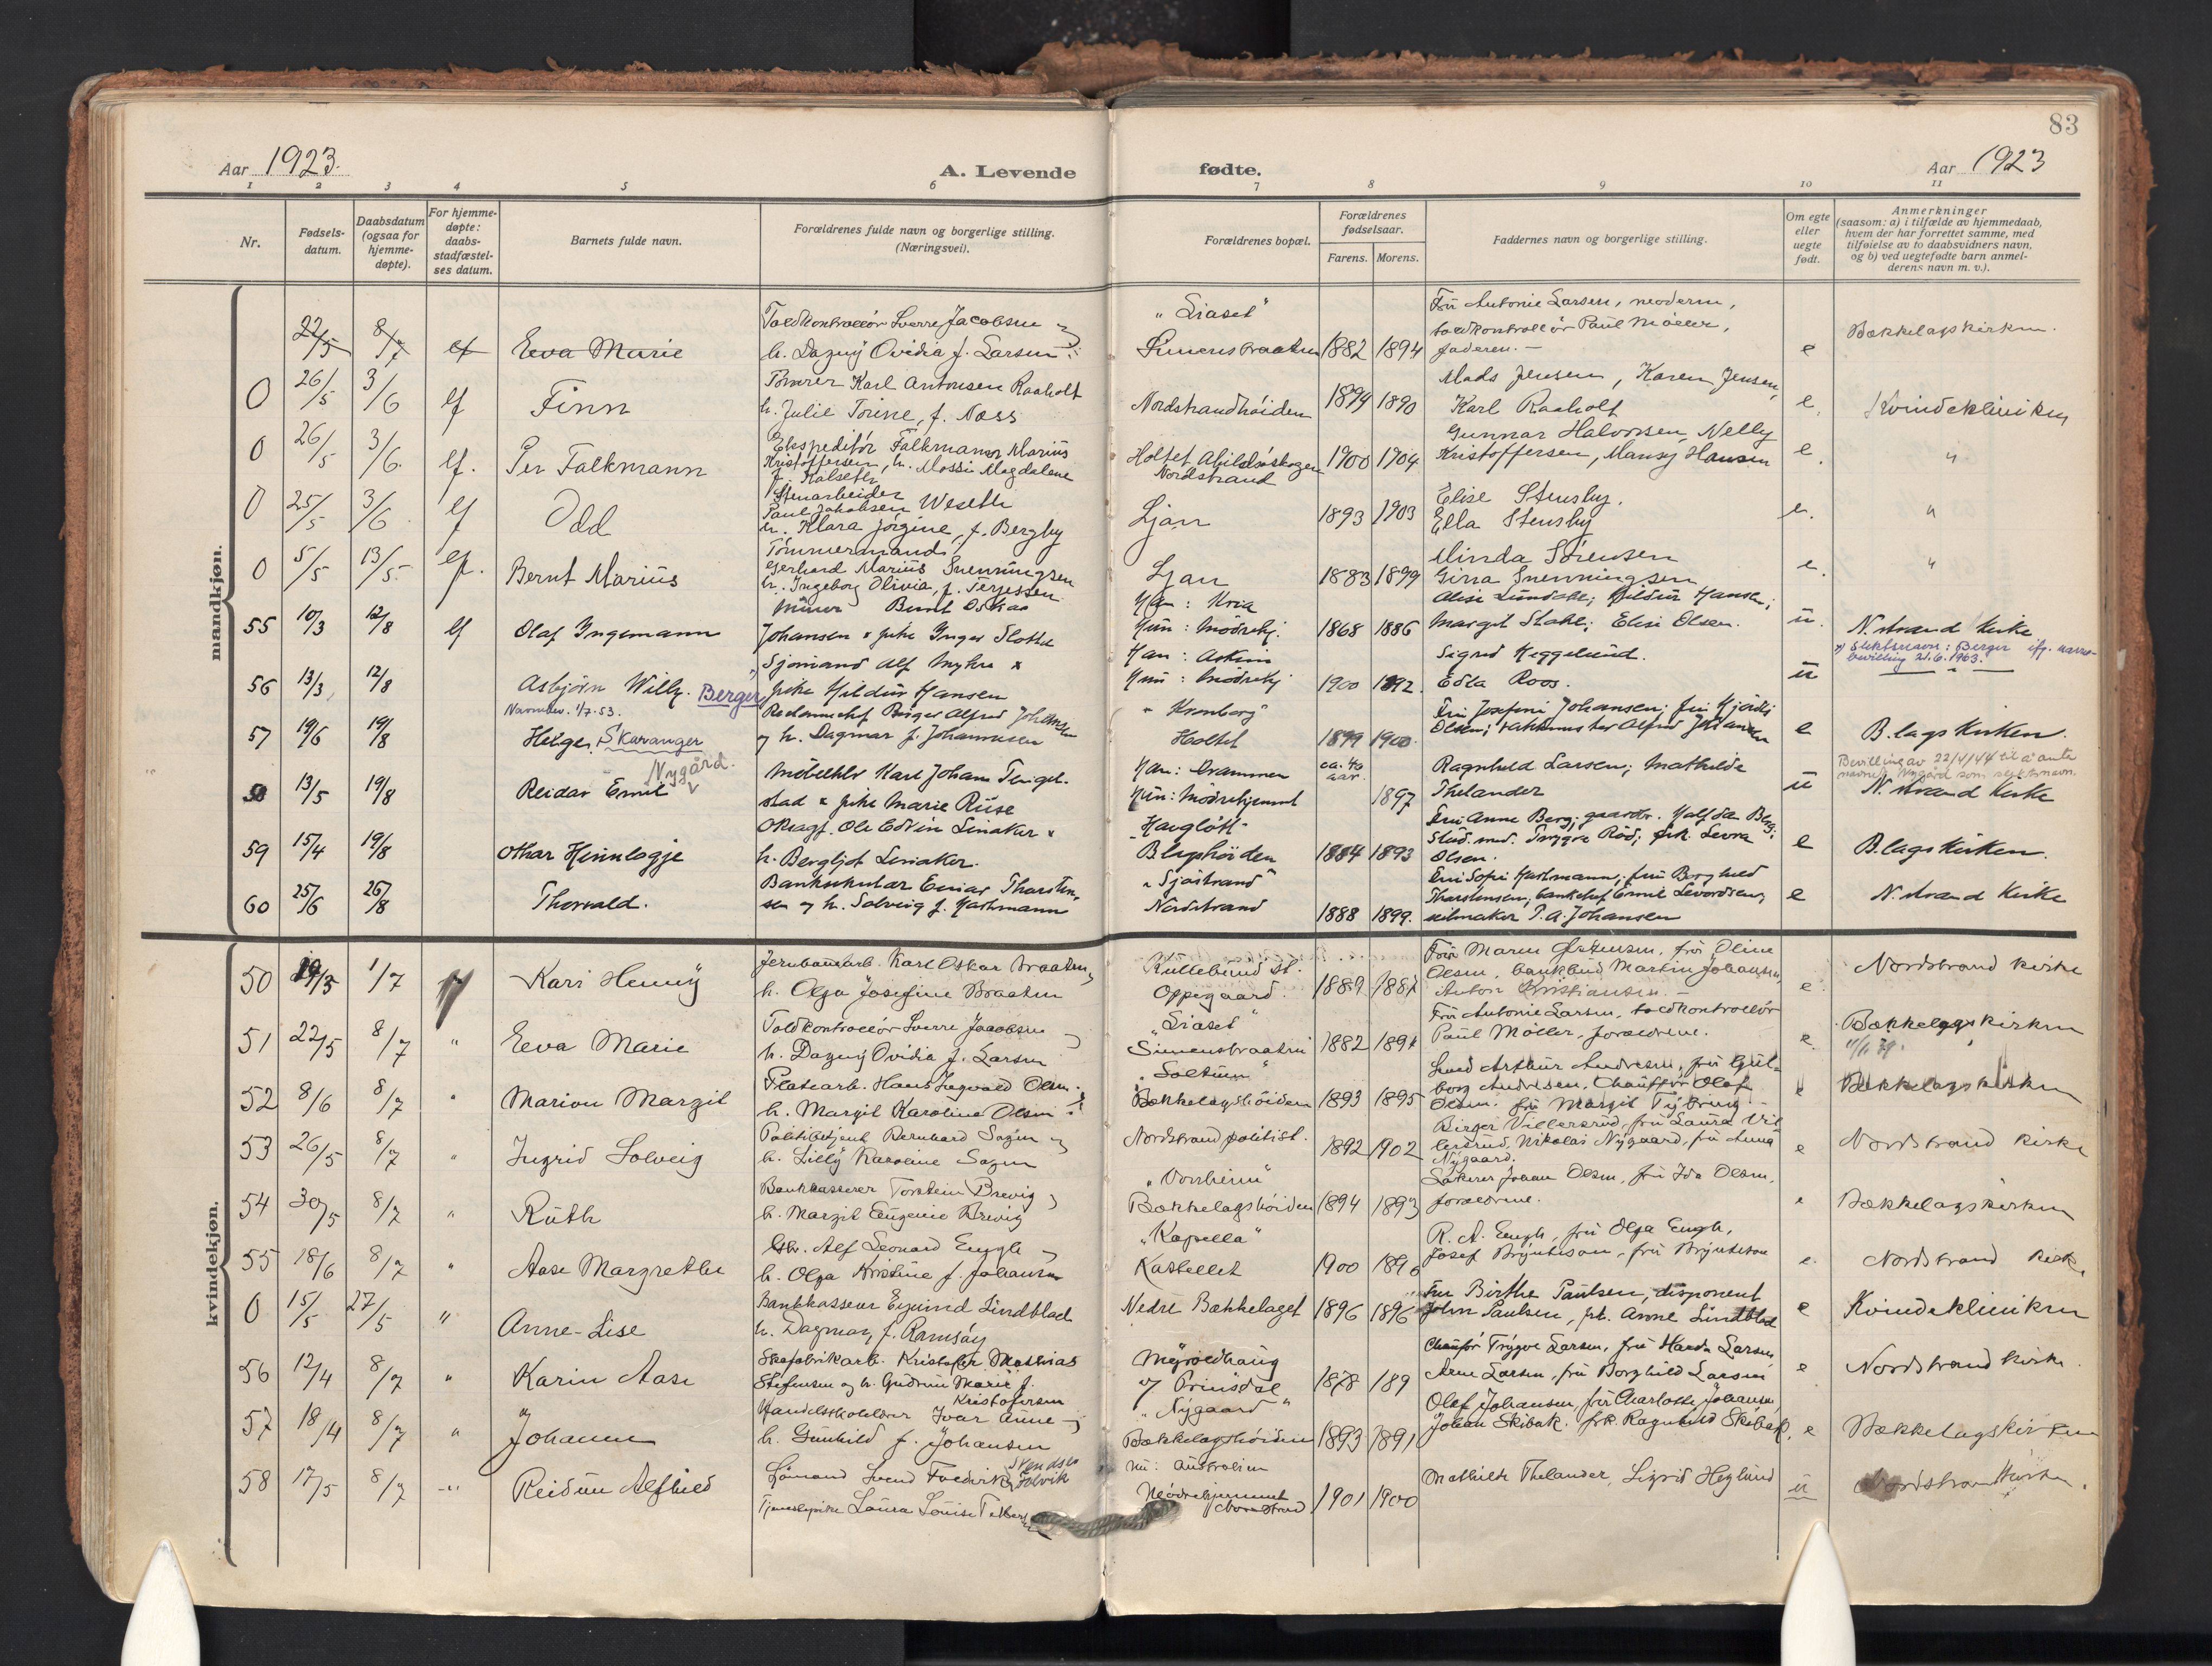 83
Aar 1923.
A. Levende
fødte.
Aar 1923
1 2 3 4 5 6 7 8 9 10 11
Nr.
Fødsels-
datum.
Daabsdatum
(ogsaa for
hjemme-
døpte).
For hjemme-
døpte:
daabs-
stadfæstel-
ses datum.
Barnets fulde navn.
Forældrenes fulde navn og borgerlige stilling.
(Næringsvei).
Forældrenes bopæl.
Forældrenes
fødselsaar.
Farens. Morens.
Faddernes navn og borgerlige stilling.
Om egte
eller
uegte
født.
Anmerkninger
(saasom: a) i tilfælde av hjemmedaab,
hvem der har forrettet samme, med
tilføielse av to daabsvidners navn,
og b) ved uegtefødte barn anmel-
derens navn m. v.).
mandkjøn.
22/5 8/7 ef Eeva Marie
Toldkontrollør Sverre Jacobsen og
h. Dagny Ovidia f. Larsen
"Liaset"
Simensbraaten 1882 1894
Fru Antonie Larsen, moderen,
toldkontrollør Paul Møller,
faderen. —
e
Bækkelagskirken.
0 26/5 3/6 ef Finn
Karl Antonsen Raaholt
h. Julie Torine, f. Næss
Nordstrandhøiden 1899 1890
Mads Jensen, Karen Jensen,
Karl Raaholt
e.
Kvindekliniken
0 26/5 3/6. ef. Per Falkmann
Ekspeditør Falkmann Marius
Kristoffersen, h. Mossi Magdalene
f. Kalseth
Holtet, Abildsøskogen
Nordstrand
1900 1904
Gunnar Halvorsen, Nelly
Kristoffersen, Mansy Hansen
e.
"
0 25/5 3/6 ef Odd
Stenarbeider
Paul Jakobsen Weseth
h. Klara Jørgine, f. Bergby
Ljan 1893 1903
Elise Stensby.
Ella Stensby
e.
"
0 5/5 13/5. ef. Bernt Marius
Tømmermand
Gerhard Marius Svenningsen
h. Ingeborg Olivia, f. Terjessen
Ljan 1883 1899
Minda Sørensen
Gina Svenningsen
e.
"
55 10/3 12/8 ef Olaf Yngemann
Bernt Oskar
Johansen & pike Inger Slotte
Han: Kria
Hun: Mødrehj. 1868 1886
Alise Lundahl; Hildur Hansen;
Margit Stahl; Elise Olsen.
u.
N. strand kirke
56 13/3 12/8
Asbjørn Willy. Berger
Navnebev. 1/7-53.
Sjømand Alf Myhre &
pike Hildur Hansen
Han: Askim
Hun: Mødrehj 1900 1892.
Sigrid Heggelund.
Edla Roos.
u
x) Slektsnavn: Berger ifg. navne-
bevilling 21.6.1963.
57 19/6 19/8
Helge. Skavanger
Reclamechef Birger Alfred Johannesen
og h. Dagmar f. Johannesen
"Kronborg"
Holtet 1899 1900.
Fru Josefine Johansen; fru Hjørdis
Olsen; Alfred Johansen
e
B.lags kirken.
58 13/5 19/8
Reidar Emil Nygård.
Møbelhdlr Karl Johan Tengel-
stad & pike Marie Riise
Han: Drammen
Hun: Mødrehjemmet
ca. 40
aar.
1897
Ragnhild Larsen; Mathilde
Thelander
u
Bevilling av 22/4/44 til å anta
navnet Nygård som slektsnavn.
N. strand kirke
59 15/4 19/8
Othar Hennlogje
Ole Edvin Lenaker &
h. Bergljot Lenaker.
"Havgløtt"
B.lagshøiden 1884 1893
Fru Anne Berg; gaardbr. Halfdan Berg;
Stud. med. Trygve Rød; frk. Leona
Olsen.
e
B.lags kirken.
60 25/6 26/8
Thorvald.
Banksekretær Einar Thorsten-
sen og h. Solveig f. Hartmann
"Sjøstrand"
Nordstrand 1888 1899.
Fru Sofie Hartmann; fru Borghild
Thorstensen; bankchef Emil Levordsen;
seilmaker P. A. Johansen
e
N. strand kirke
kvindekjøn.
50 19/3 1/7
Kari Henny
Jernbanearb. Karl Oskar Braaten,
h. Olga Josefine Braaten
Kullebund st.
Oppegaard. 1889 1887
Fru Maren Østensen, fru Oline
Olsen, bankbud Martin Johansen,
Anton Kristiansen —
e.
Nordstrand kirke
51 22/5 8/7 "
Eeva Marie
Toldkontrollør Sverre Jacobsen og
h. Dagny Ovidia f. Larsen
"Liaset"
Simensbraaten 1882 1894
Fru Antonie Larsen, toldkontrollør
Paul Møller, forældrene.
e.
Bækkelagskirken
52 8/6 8/7 "
Marion Margit
Platearb. Hans Ingvald Olsen
h. Margit Karoline Olsen
"Soltun"
Bækkelagshøiden 1893 1895
Smed Arthur Andresen, fru Gul-
borg Andresen, Chauffør Olaf
Olsen, fru Margit
e
Bækkelagskirken
53 26/5 8/7 "
Ingrid Solveig
Politibetjent Bernhard Sagen og
h. Lilly Karoline Sagen
Nordstrand politist. 1892 1902
Birger Villersrud, fru Laura Vil-
lersrud, Nikolai Nygaard, fru Anna
Nygaard.
e
Nordstrand kirke
54 30/5 8/7 "
Ruth
Bankkasserer Torstein Brevig,
h. Margit Eugenie Brevig
"Vonheim"
Bækkelagshøiden 1894 1893
Lakerer Johan Olsen, fru Ida Olsen,
forældrene.
e
Bækkelagskirken
55 18/6 8/7 "
Aase Margrethe
Alf Leonard Eugh og
h. Olga Kristine f. Johansen
"Kapella"
Kastellet 1900 1896
R. A. Eugh, fru Olga Eugh,
Josef Bryntesson, fru Bryntesson
e.
Nordstrand kirk.
0 15/5 27/5 "
Anne-Lise
Bankkasserer Eyvind Lindblad
h. Dagmar, f. Ramsøy
Nedre Bækkelaget 1896 1896
Fru Birthe Paulsen, disponent
John Paulsen, frk. Anne Lindblad
e
Kvindekliniken
56 12/4 8/7 "
Karin Aase
Skofabrikarb. Kristofer Mathias
Stefensen og h. Gudrun Marie f.
Kristofersen
Myrvoldhaug
Prinsdal 1878 189
Chaufør Trygve Larsen, fru Harda Larsen,
Arne Larsen, fru Borghild Larsen
e
Nordstrand kirke.
57 18/4 8/7 "
Johanne
Ivar Aune og
h. Gunhild f. Johansen
"Nygaard"
Bækkelagshøiden 1893 1891
Olaf Johansen, fru Charlotte Johansen,
Johan Skibak. frk. Ragnhild Skibak,
e
Bækkelagskirken
58 17/5 8/7 "
Reidun Alfhild
Sjømand Svend Fredrik Svendsen Folvik
Tjenestepike Laura Louise
nu: Australien
Mødrehjemmet
Nordstrand 1901 1900
Mathilde Thelander, Sigrid Heglund
u
Nordstrand kirke.